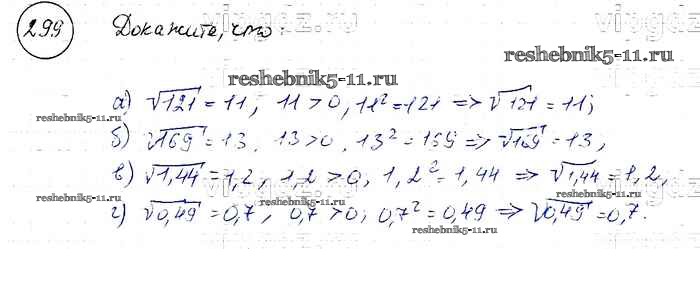 vipgdz.ru
299 Докажите, что:
reshebnik5-11.ru
reshebnik5-11.ru
а) √121 = 11, 11 > 0, 11² = 121 => √121 = 11;
reshebnik5-11.ru
б) √169 = 13, 13 > 0, 13² = 169 => √169 = 13,
в) √1,44 = 1,2, 1,2 > 0, 1,2² = 1,44 => √1,44 = 1,2,
reshebnik5-11.ru
reshebnik5-11.ru
г) √0,49 = 0,7, 0,7 > 0; 0,7² = 0,49 => √0,49 = 0,7.
reshebnik5-11.ru